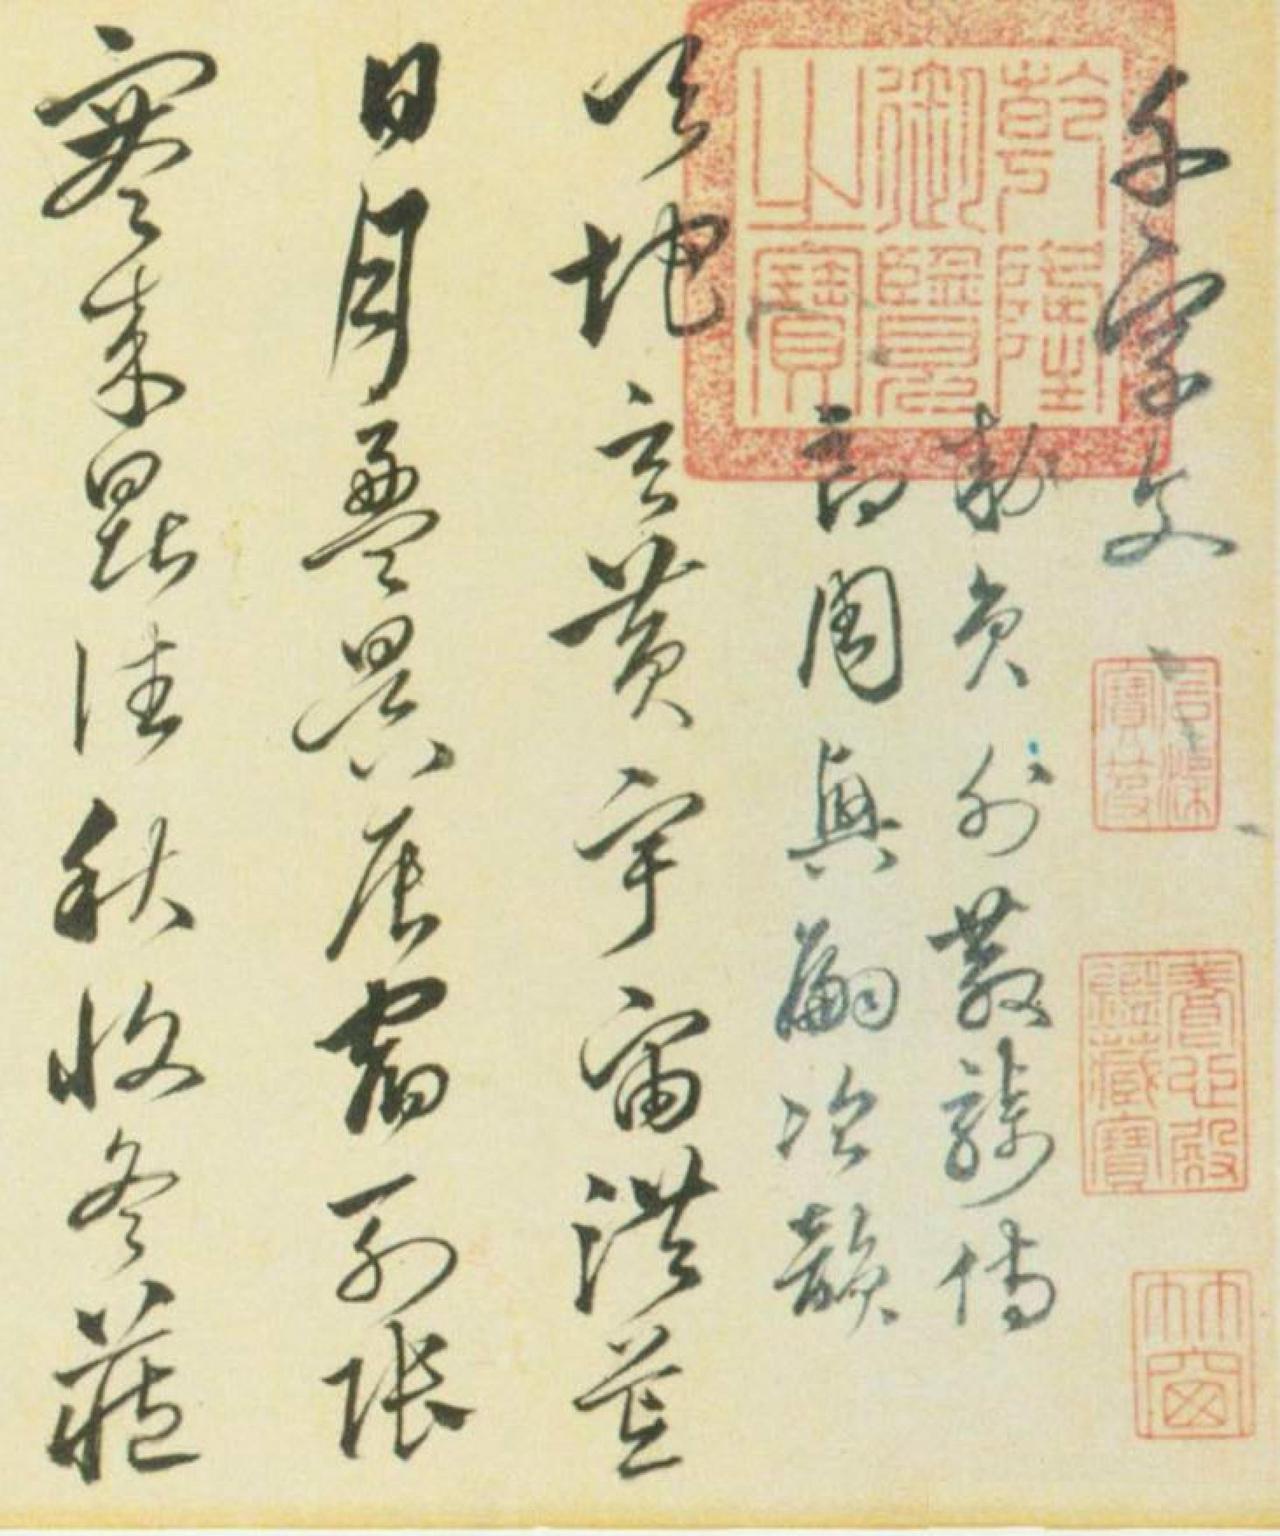 千字文
石渠寶笈
養心殿鑑藏寶
乾隆御覽之寶
勅員外散騎侍
郎周興嗣次韻
天地玄黃宇宙洪荒
日月盈昃辰宿列張
寒來暑往秋收冬藏